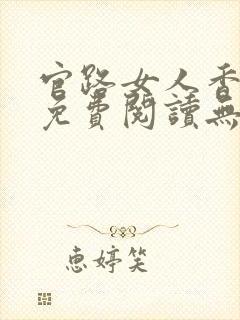 官路女人香
免費閱讀無
惠婷笑